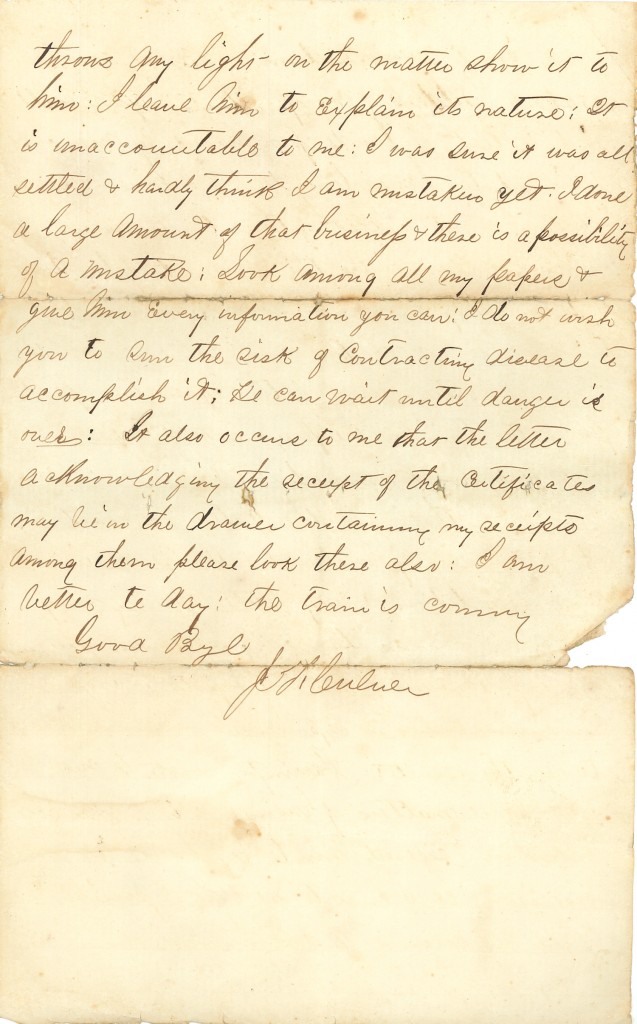 throws any light on the matter show it to
him: I leave him to explain its nature: It
is unaccountable to me: I was sure it was all
settled & hardly think I am mistaken yet. I done
a large amount of that business & there is a possibility
of a mistake: Look among all my papers &
give him every information you can: I do not wish
you to run the risk of contracting disease to
accomplish it; He can wait until danger is
over: It also occurs to me that the letter
acknowledging the receipt of the certificates
may be in the drawer containing my receipts
among them please look there also: I am
better to day: the train is coming
Good Bye